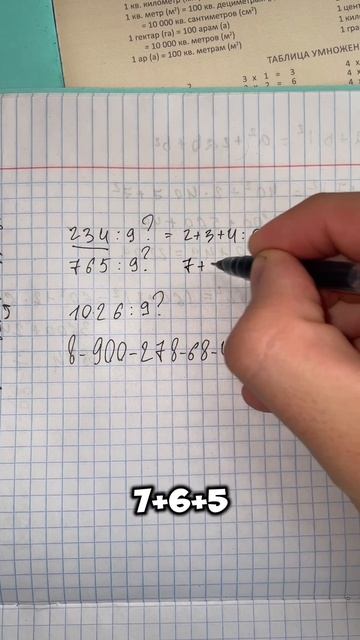 1 кв. метр (м²) = 100 кв. дециметрам
= 10 000 кв. сантиметров (см²)
1 гектар (га) = 100 арам (а)
= 10 000 кв. метров (м²)
1 ар (а) = 100 кв. метрам (м²)
ТАБЛИЦА УМНОЖЕН
3 x 1 = 3
3 x 2 = 6
234 : 9 ? = 2+3+4 :
765 : 9 ? 7+
1026 : 9 ?
8-900-278-68-
7+6+5